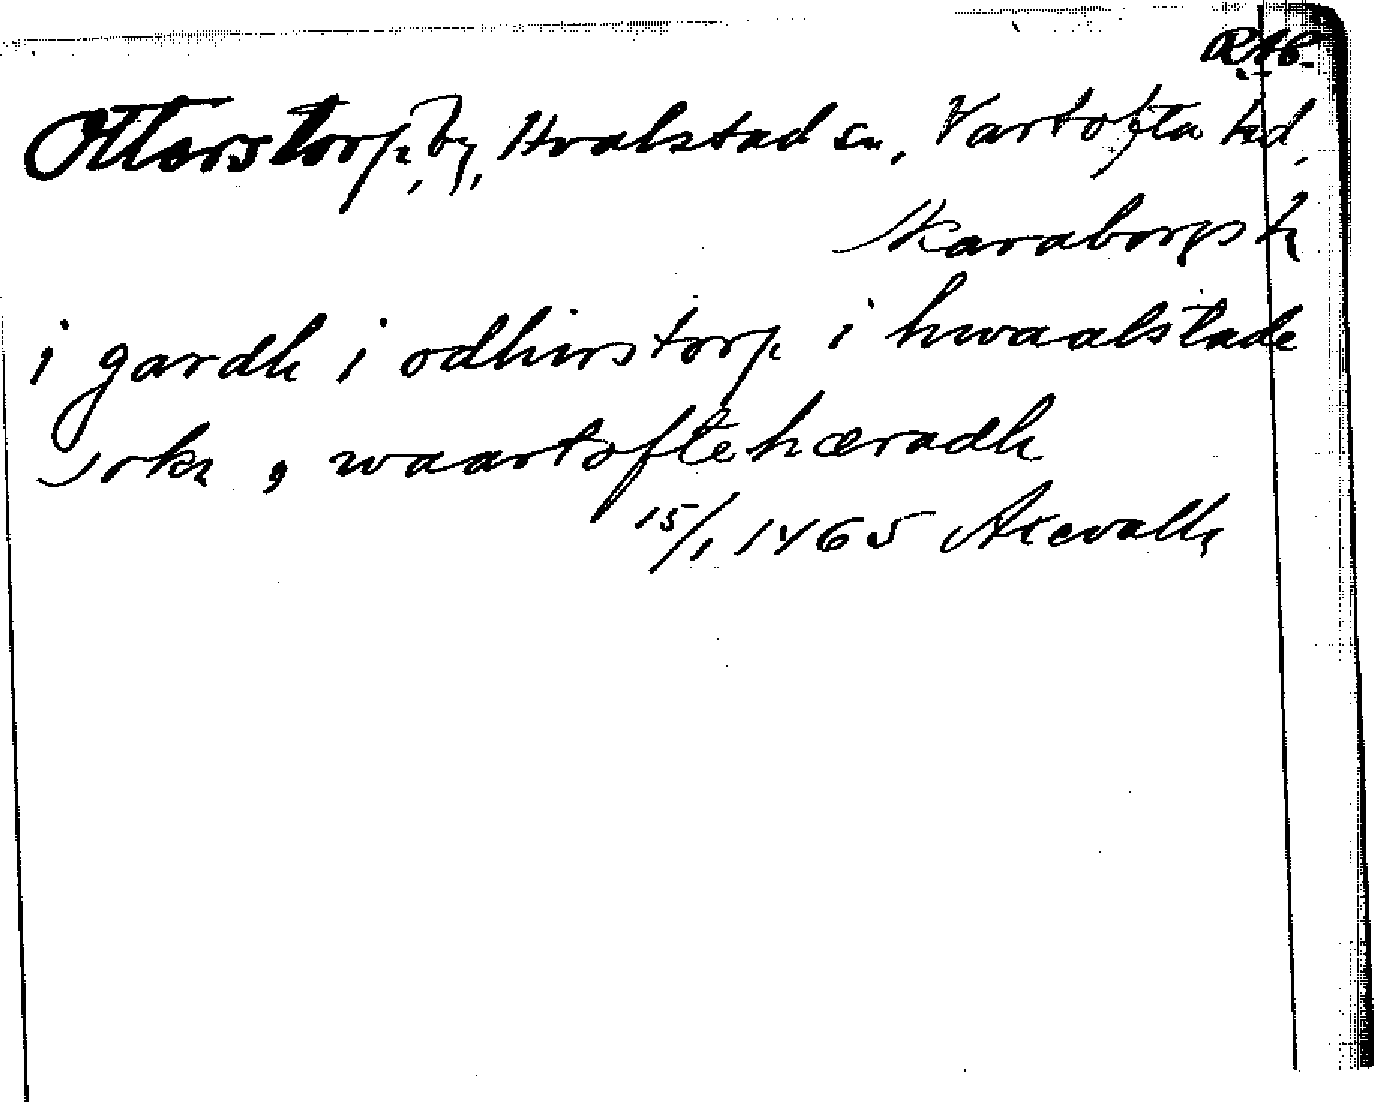 RAP.
Otterstorp, by, Hvalstad sn, Vartofta hd,
Skaraborgs l
i gardh i odhirstorp i hwaalstada
sokn, waartoftehæradh
15/1 1465 Axevalla